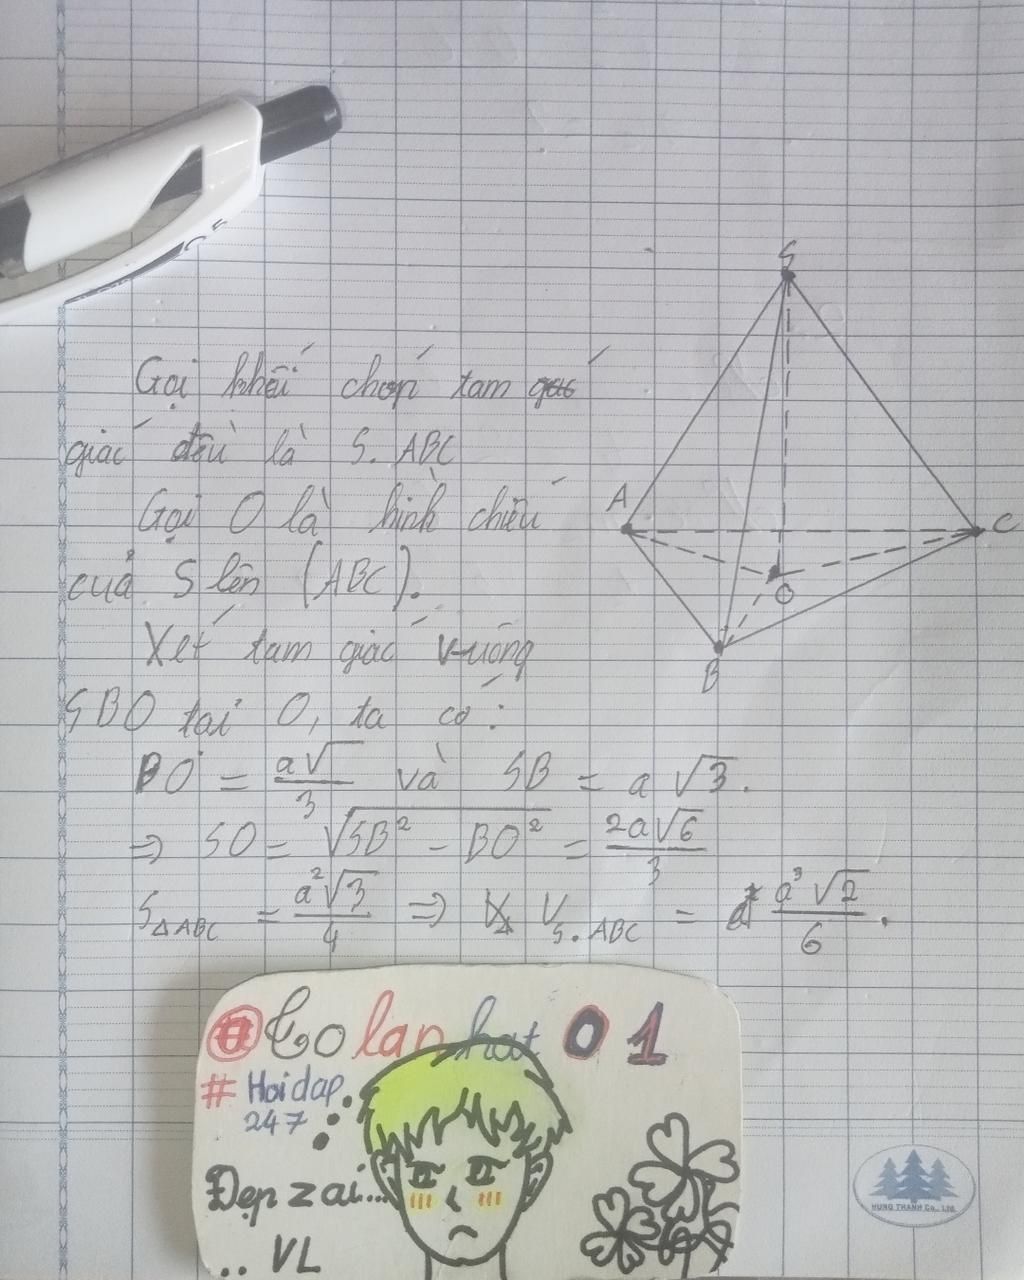 S
A
C
O
B
Gọi khối chóp tam giác
giác đều là S.ABC
Gọi O là hình chiếu
của S lên (ABC).
Xét tam giác vuông
SBO tại O, ta có:
BO = a√ / 3 và SB = a√3.
=> SO = √(SB² - BO²) = 2a√6 / 3
S△ABC = a²√3 / 4 => V S.ABC = a³√2 / 6.
@Colanhat 01
# Hoidap
247
Đẹp zai...
.. VL
HUNG THANH Co., Ltd.